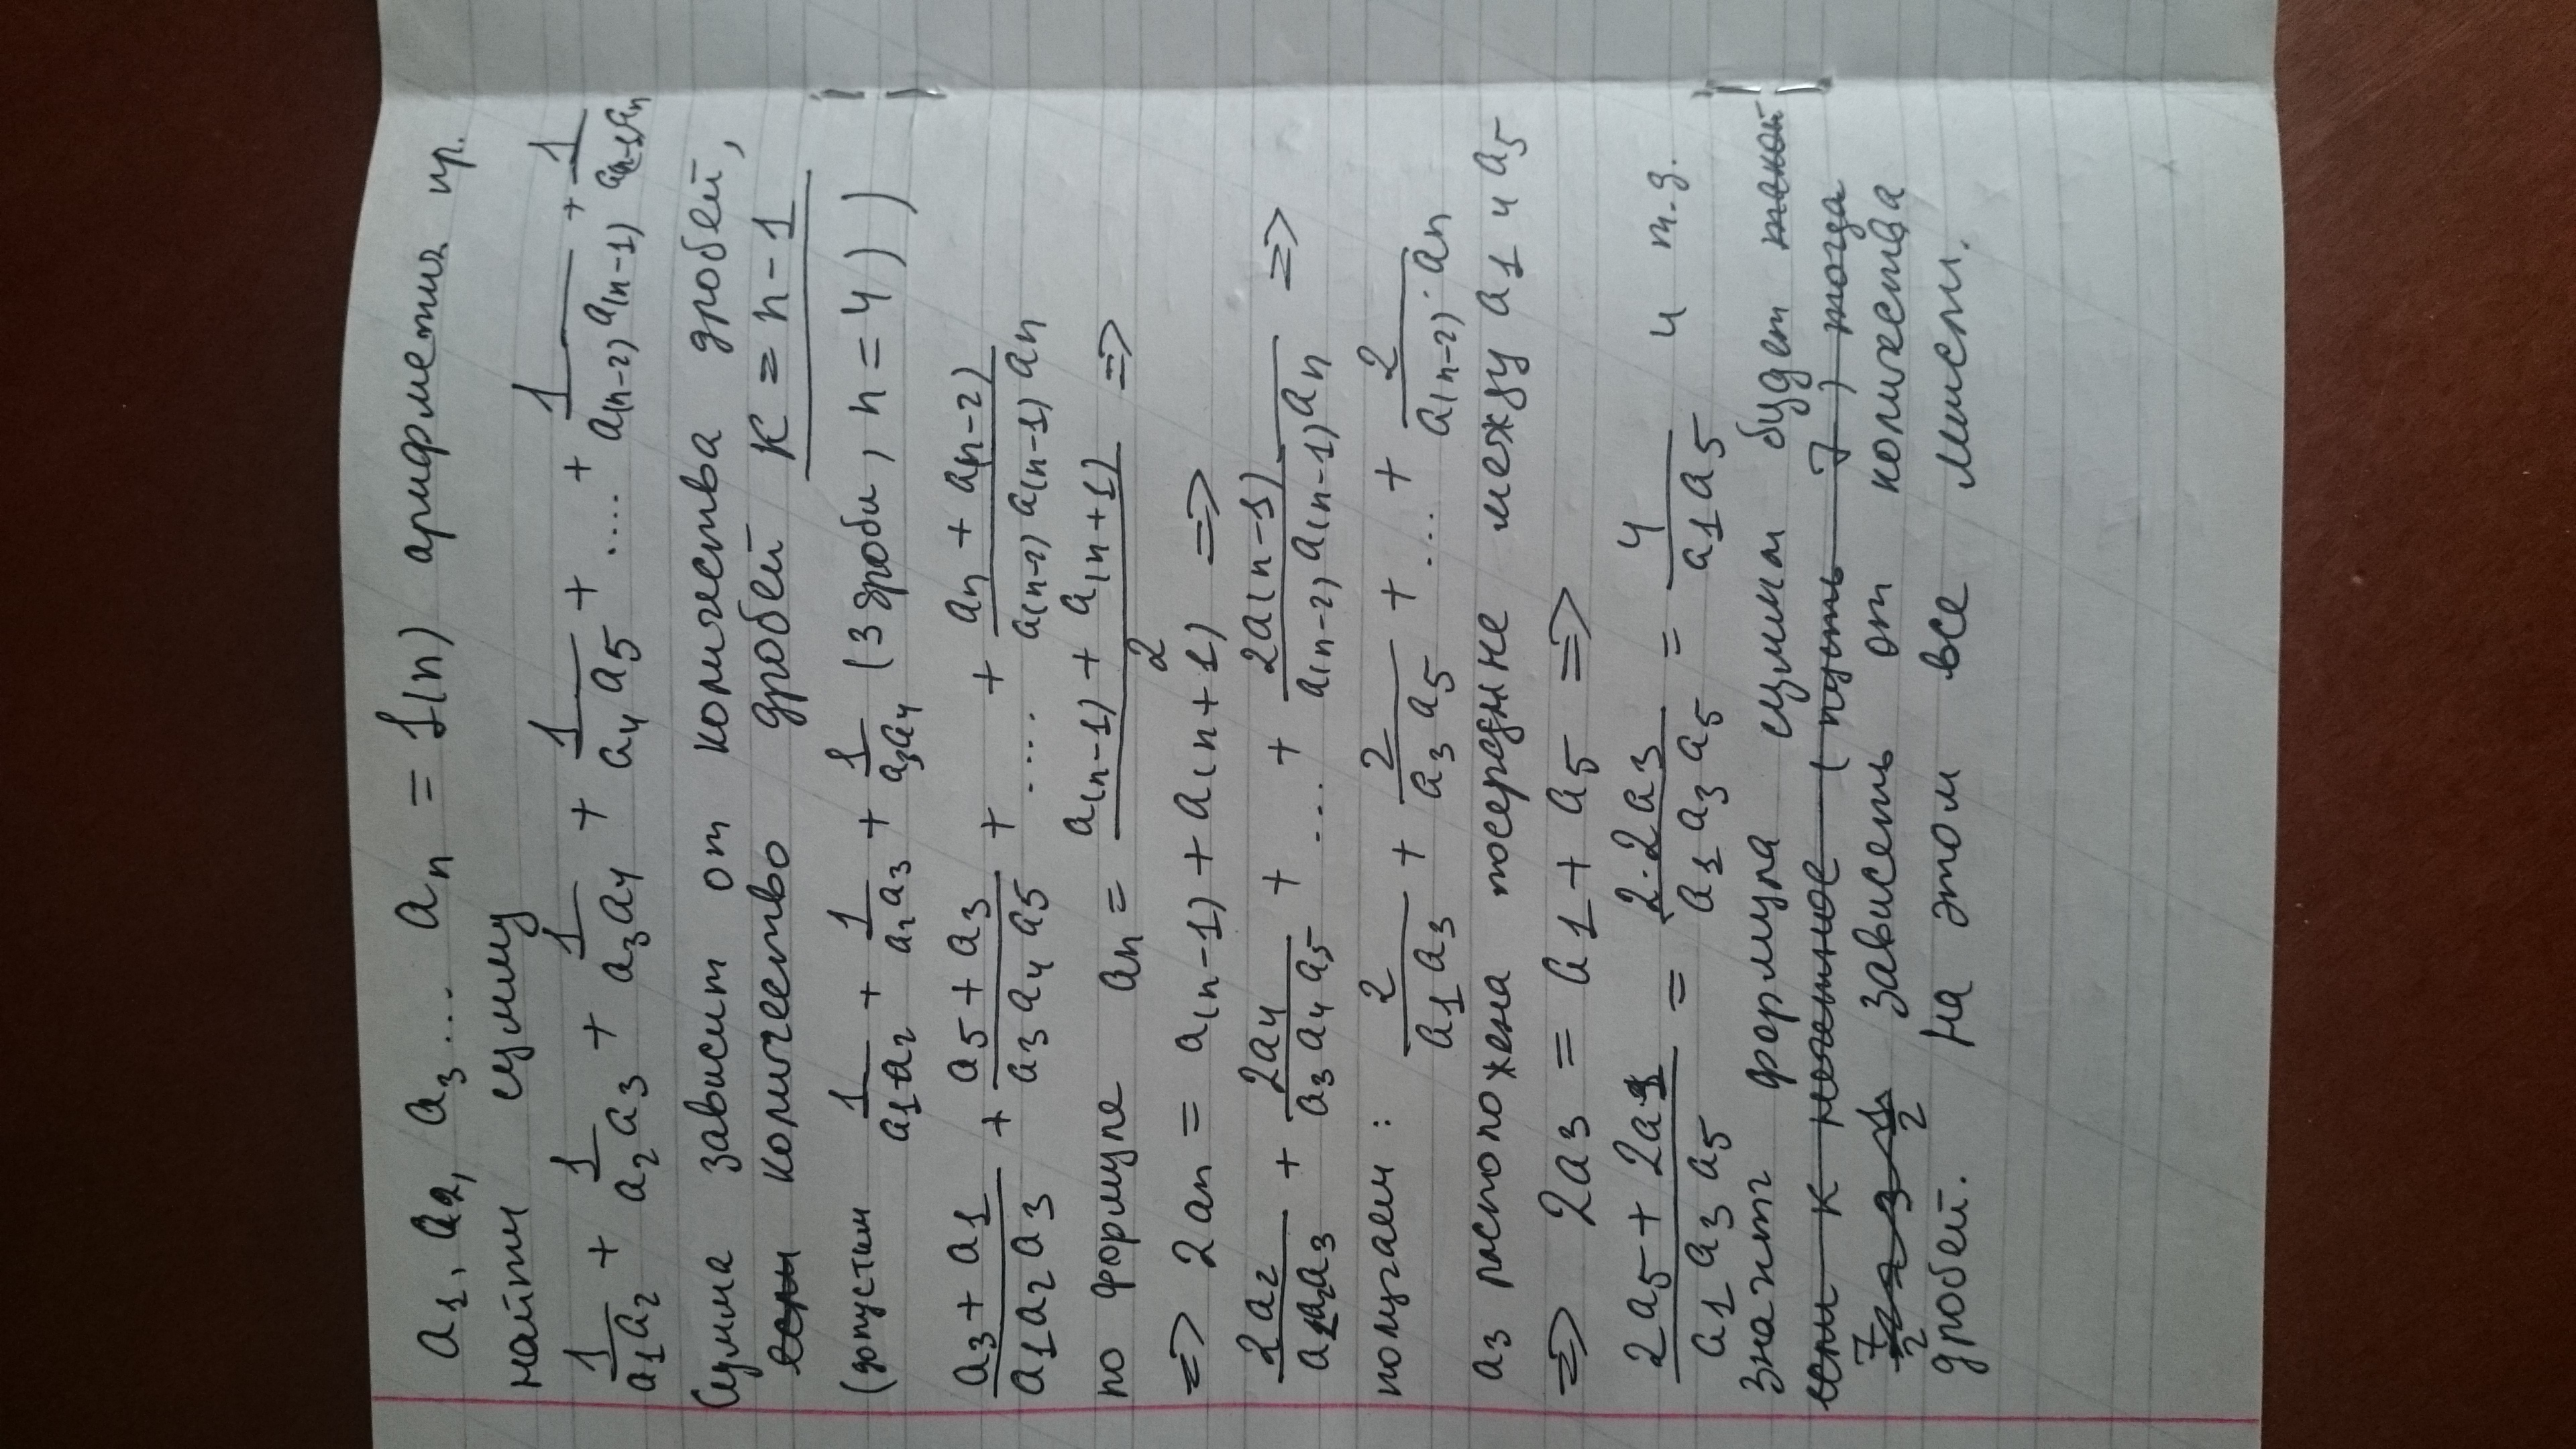 a1, a2, a3... an = f(n) арифметич пр.
найти сумму
1/a1a2 + 1/a2a3 + 1/a3a4 + 1/a4a5 + .... + 1/a(n-2)a(n-1) + 1/an-1an
Сумма зависит от количества дробей,
если количество дробей K = n-1
(допустим 1/a1a2 + 1/a2a3 + 1/a3a4 (3 дроби, n=4))
a3+a1/a1a2a3 + a5+a3/a3a4a5 + .... + an+an-2)/a(n-2)a(n-1)an
по формуле an = a(n-1)+a(n+1)/2 =>
=> 2an = a(n-1)+a(n+1) =>
2a2/a1a2a3 + 2a4/a3a4a5 + ... + 2a(n-1)/a(n-2)a(n-1)an =>
получаем: 2/a1a3 + 2/a3a5 + ... + 2/a(n-2)·an
a3 расположена посередине между a1 и a5
=> 2a3 = a1 + a5 =>
2a5+2a1/a1a3a5 = 2·2a3/a1a3a5 = 4/a1a5 и т.д.
значит формула суммы будет такой
если к нечетное (пусть 7) тогда
зависеть от количества
дробей. На этом все мысли.